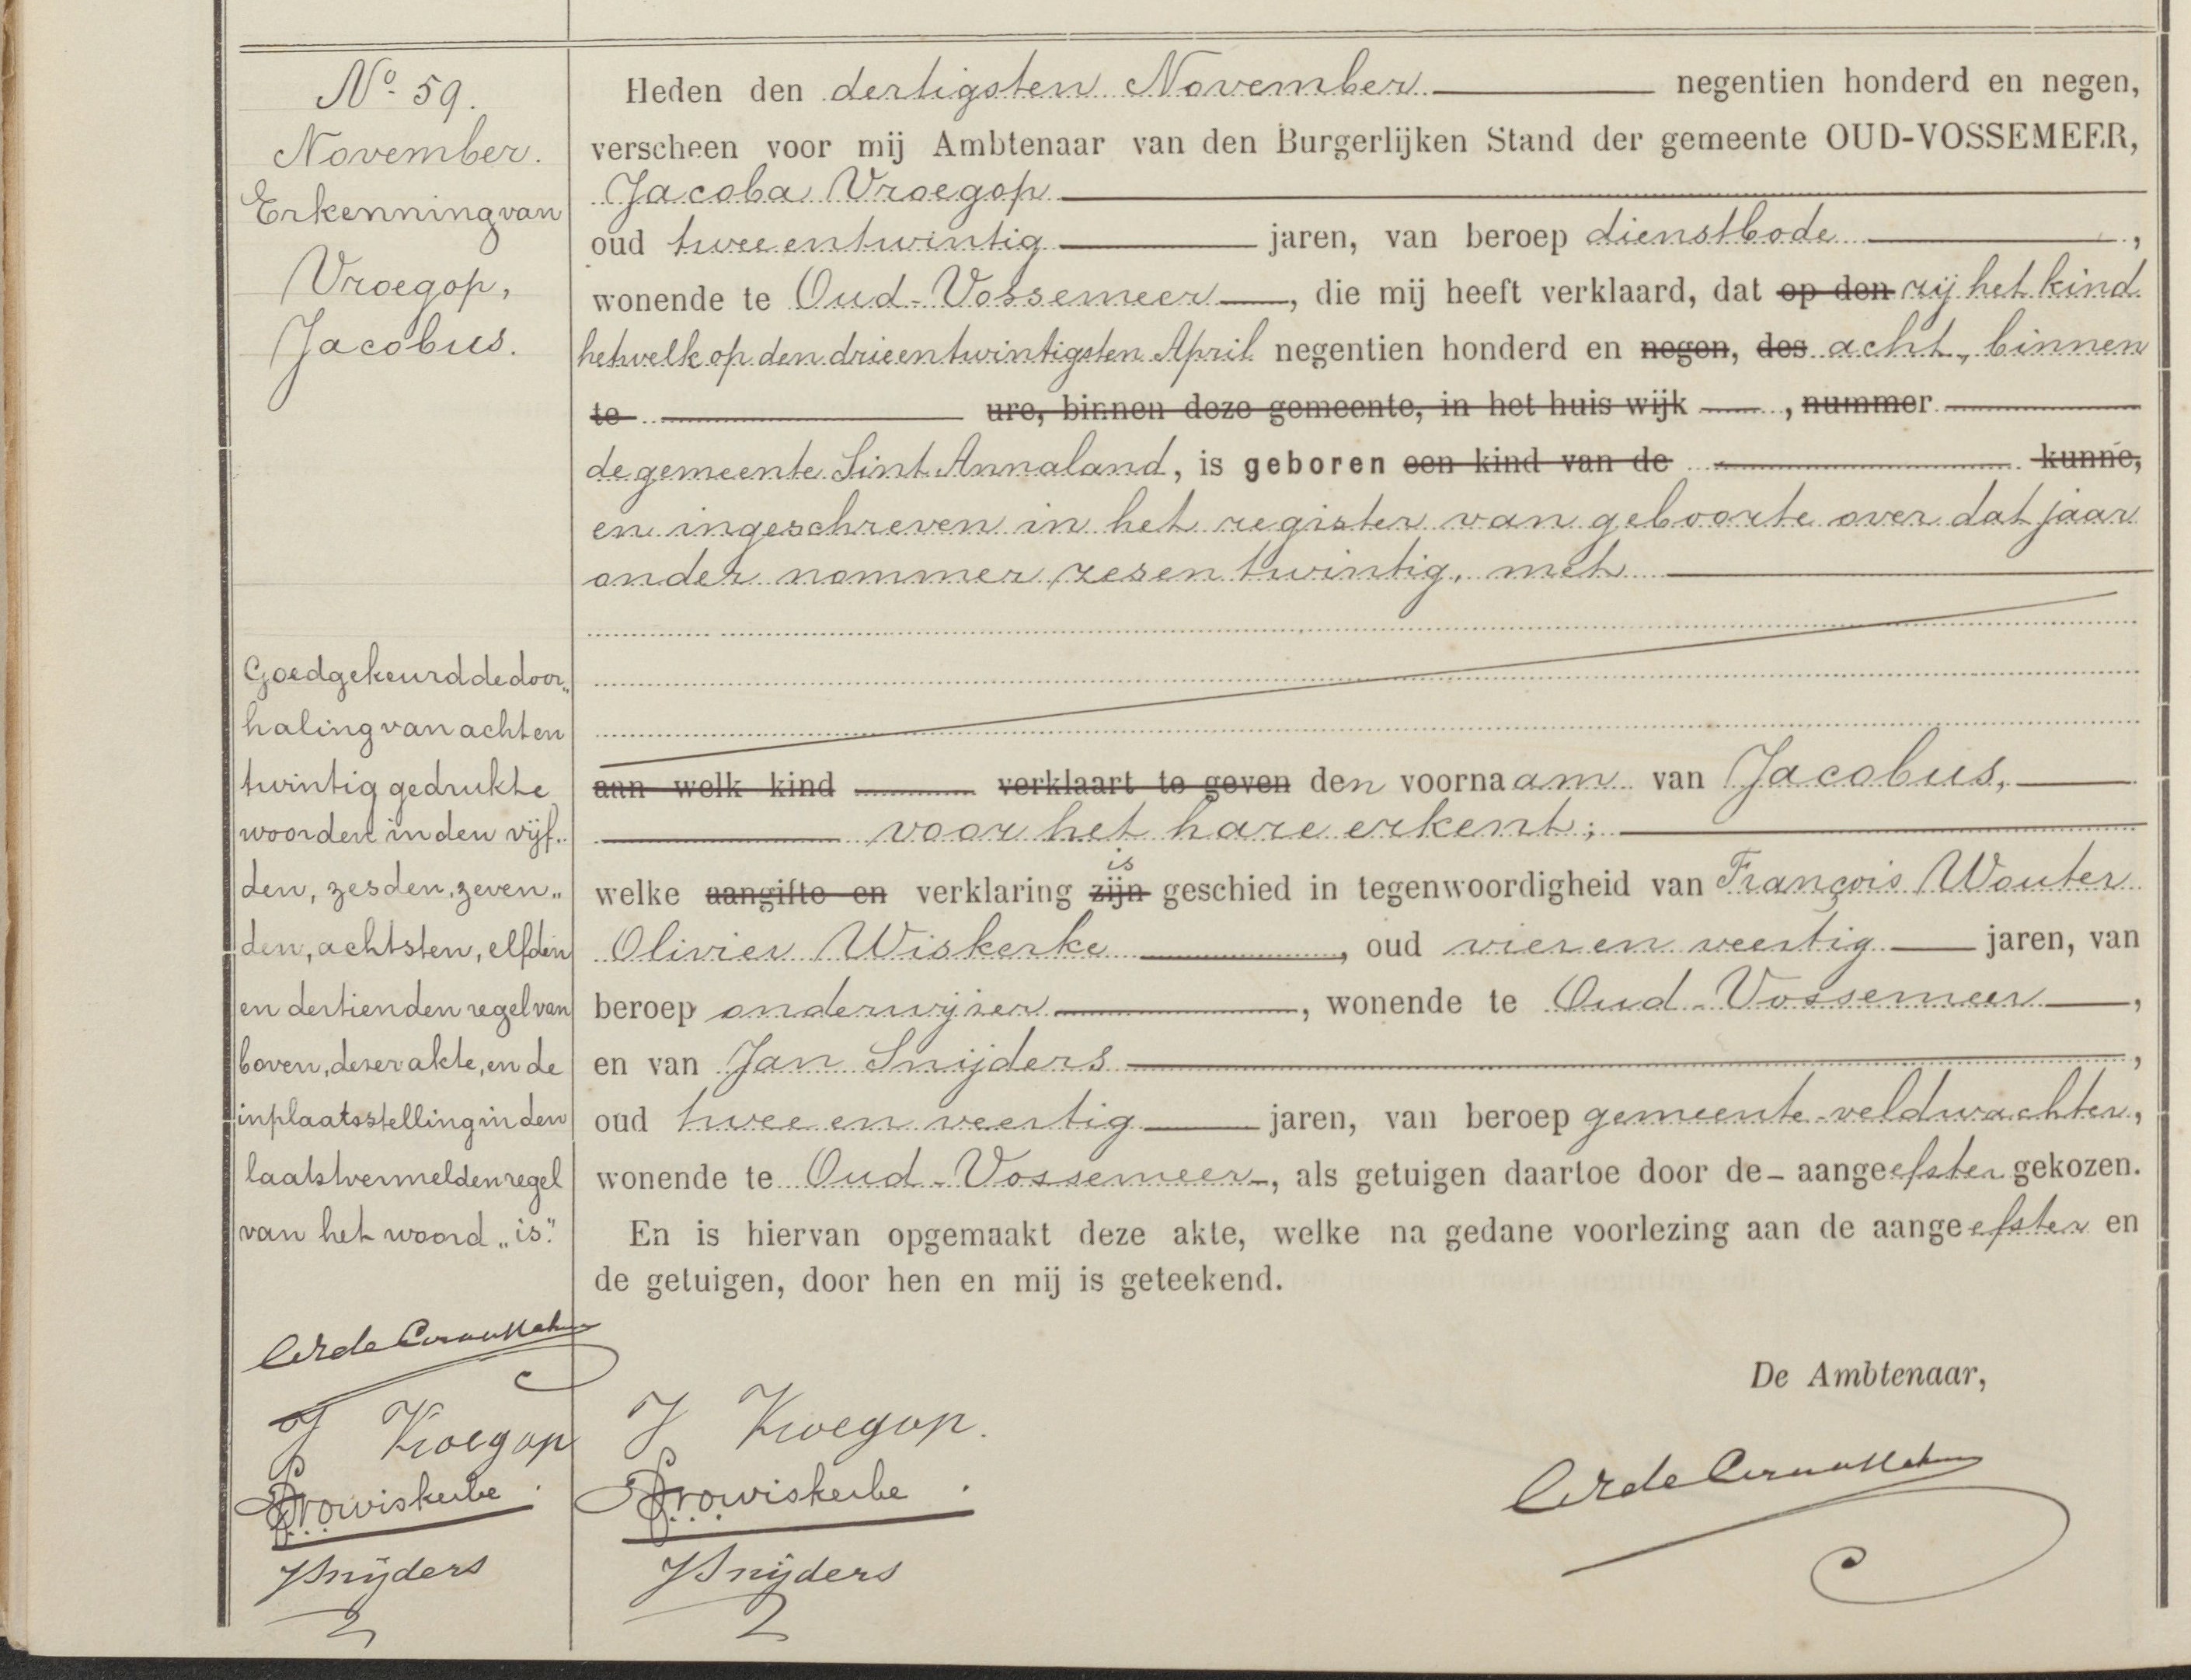 No. 59.
November.
Erkenning van
Vroegop,
Jacobus.
Goedgekeurd de door„
haling van achten
twintig gedrukte
woorden in den vijf„
den, zesden, zeven„
den, achtsten, elfden
en dertienden regel van
boven, dezer akte, en de
inplaatsstelling in den
laatstvermelden regel
van het woord „is."
J Vroegop
FWOWiskerke.
JSnijders
Heden den dertigsten November negentien honderd en negen,
verscheen voor mij Ambtenaar van den Burgerlijken Stand der gemeente OUD-VOSSEMEER,
Jacoba Vroegop
oud twee en twintig jaren, van beroep dienstbode,
wonende te Oud-Vossemeer, die mij heeft verklaard, dat op den zij het kind
hetwelk op den drieentwintigsten April negentien honderd en negen, des acht, binnen
te ure, binnen deze gemeente, in het huis wijk , nummer
de gemeente Sint Annaland, is geboren een kind van de kunne,
en ingeschreven in het register van geboorte over dat jaar
onder nommer zesentwintig, met
aan welk kind verklaart te geven den voornaam van Jacobus,
voor het hare erkent;
is
welke aangifte en verklaring zijn geschied in tegenwoordigheid van François Wouter
Olivier Wiskerke, oud vier en veertig jaren, van
beroep onderwijzer, wonende te Oud-Vossemeer,
en van Jan Snijders,
oud twee en veertig jaren, van beroep gemeente-veldwachter,
wonende te Oud-Vossemeer, als getuigen daartoe door de- aangeefster gekozen.
En is hiervan opgemaakt deze akte, welke na gedane voorlezing aan de aangeefster en
de getuigen, door hen en mij is geteekend.
De Ambtenaar,
J Vroegop.
FWOWiskerke.
JSnijders